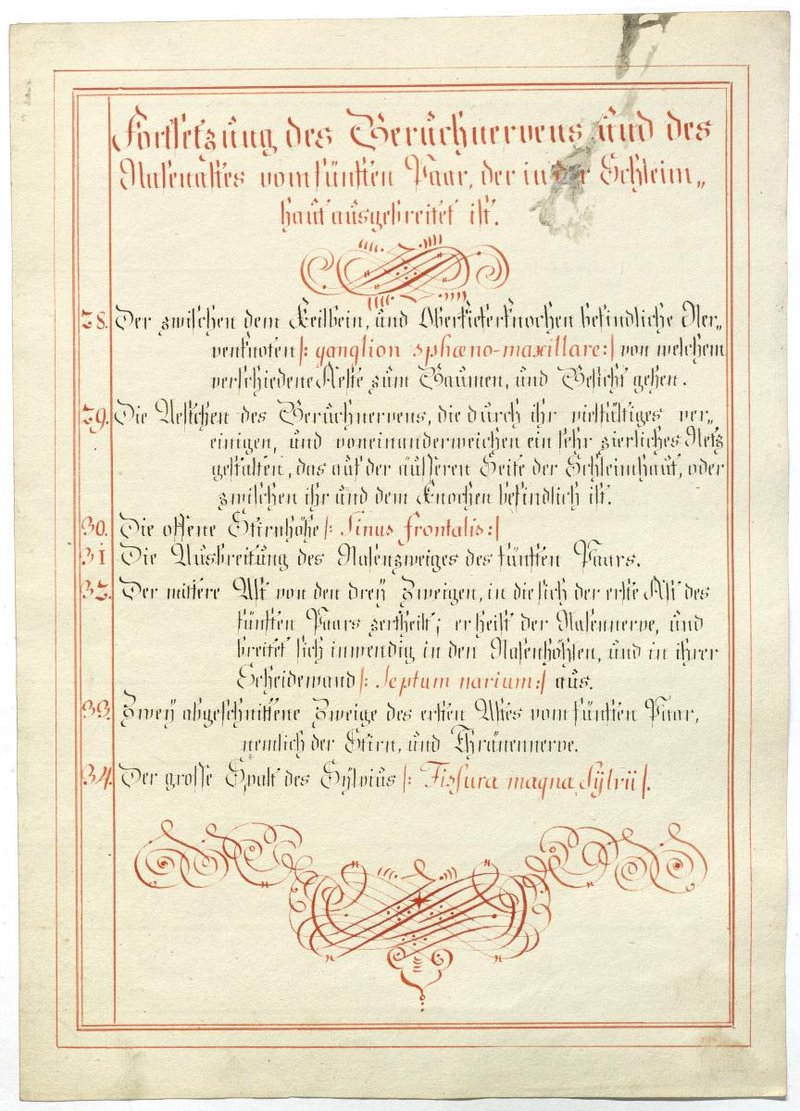 Fortsetzung des Geruchnervens und des
Nasenastes vom fünften Paar, der in der Schleim„
haut ausgebreitet ist.
28. Der zwischen dem Keilbein, und Oberkieferknochen befindliche Ner„
venknoten |: ganglion sphæno-maxillare :| von welchem
verschiedene Aeste zum Gaumen, und Gesicht gehen.
29. Die Aestchen des Geruchnervens, die durch ihr vielfältiges ver„
einigen, und voneinanderweichen ein sehr zierliches Netz
gestalten, das auf der äusseren Seite der Schleimhaut, oder
zwischen ihr und dem Knochen befindlich ist.
30. Die offene Stirnhöhe |: Sinus frontalis :|
31 Die Ausbreitung des Nasenzweiges des fünften Paars.
32. Der mittere Ast von den dreÿ Zweigen, in die sich der erste Ast des
fünften Paars zertheilt; er heist der Nasennerve, und
breitet sich inwendig in den Nasenhöhlen, und in ihrer
Scheidewand |: Septum narium :| aus.
33. Zweÿ abgeschnittene Zweige des ersten Astes vom fünften Paar,
nemlich der Stirn, und Thränennerve.
34. Der grosse Spalt des Sÿlvius |: Fissura magna Sÿlvii |.